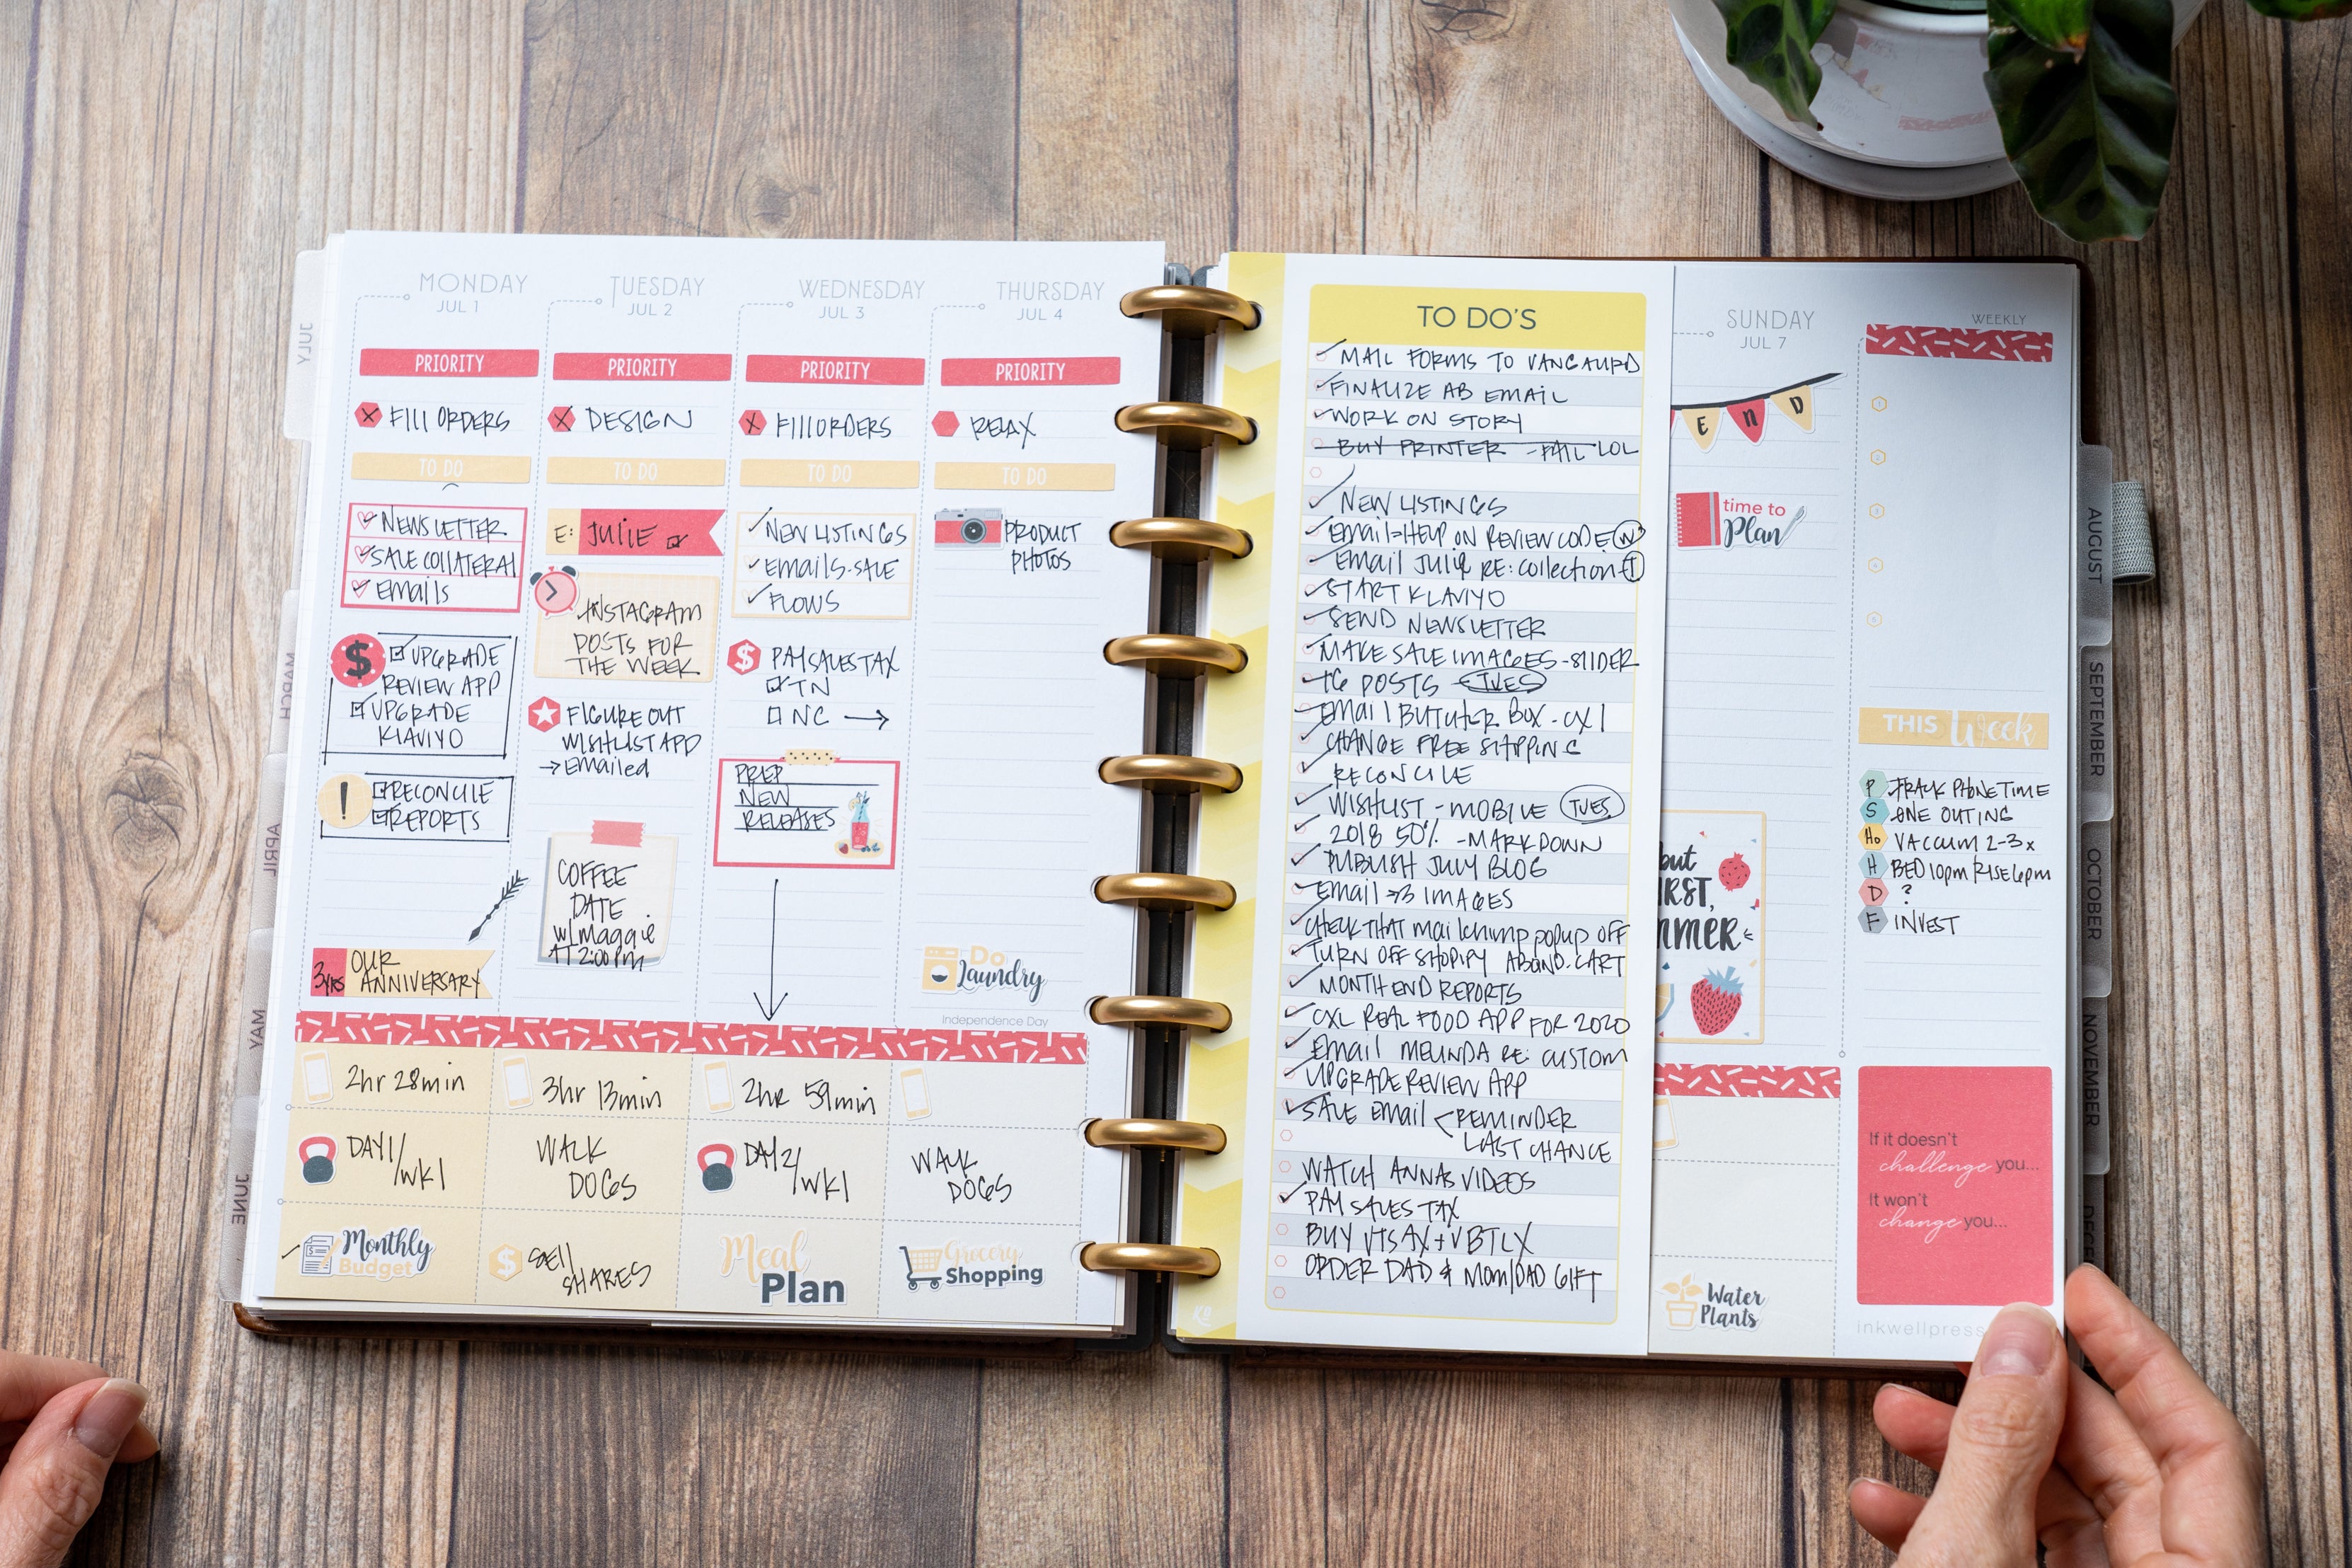 MONDAY
JUL 1
PRIORITY
FILL ORDERS
TO DO
NEWSLETTER
SALE COLLATERAL
EMAILS
$ UPGRADE
REVIEW APP
UPGRADE
KLAVIYO
! RECONCILE
REPORTS
3YRS OUR
ANNIVERSARY
2hr 28min
DAY1/
WK1
Monthly
Budget
TUESDAY
JUL 2
PRIORITY
DESIGN
TO DO
E: JULIE
INSTAGRAM
POSTS FOR
THE WEEK
FIGURE OUT
WISHLIST APP
→ EMAILED
COFFEE
DATE
W/MAGGIE
AT 2:00PM
3hr 13min
WALK
DOGS
$ SELL
SHARES
WEDNESDAY
JUL 3
PRIORITY
FILL ORDERS
TO DO
NEW LISTINGS
EMAILS-SALE
FLOWS
$ PAY SALES TAX
TN
NC →
PREP
NEW
RELEASES
2hr 59min
DAY2/
WK1
Meal
Plan
THURSDAY
JUL 4
PRIORITY
RELAX
TO DO
PRODUCT
PHOTOS
Do
Laundry
Independence Day
WALK
DOGS
Grocery
Shopping
TO DO'S
MAIL FORMS TO VANGAURD
FINALIZE AB EMAIL
WORK ON STORY
BUY PRINTER - FAIL LOL
NEW LISTINGS
EMAIL=HELP ON REVIEW CODE W
EMAIL JULIE RE: COLLECTION T
START KLAVIYO
SEND NEWSLETTER
MAKE SALE IMAGES - SLIDER
IG POSTS - TUES
EMAIL BUTCHER BOX - CXL
CHANGE FREE SHIPPING
RECONCILE
WISHLIST - MOBILE TUES
2018 50% - MARKDOWN
PUBLISH JULY BLOG
EMAIL → 3 IMAGES
CHECK THAT MAILCHIMP POPUP OFF
TURN OFF SHOPIFY ABAND. CART
MONTH END REPORTS
CXL REAL FOOD APP FOR 2020
EMAIL MELINDA RE: CUSTOM
UPGRADE REVIEW APP
SALE EMAIL < REMINDER
LAST CHANCE
WATCH ANNAS VIDEOS
PAY SALES TAX
BUY VTSAX + VBTLX
ORDER DAD & MOM/DAD GIFT
KO
SUNDAY
JUL 7
END
time to
Plan
but
IRST,
MMER
Water
Plants
WEEKLY
1
2
3
4
5
THIS Week
P TRACK PHONE TIME
S ONE OUTING
Ho VACCUM 2-3X
H BED 10pm/RISE 6pm
D ?
F INVEST
If it doesn't
challenge you...
It won't
change you...
inkwellpress
JULY
MARCH
APRIL
MAY
JUNE
AUGUST
SEPTEMBER
OCTOBER
NOVEMBER
DECE